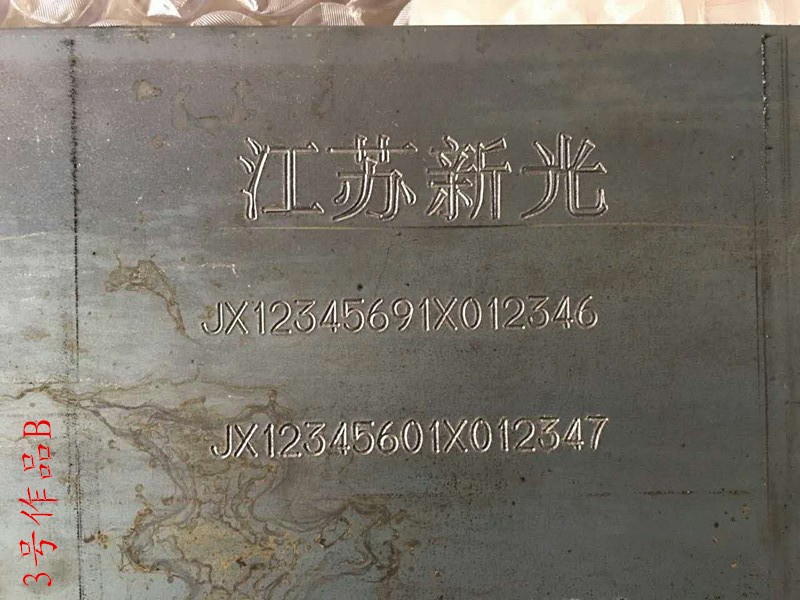 江苏新光
JX12345691X012346
JX12345601X012347
3号作品B